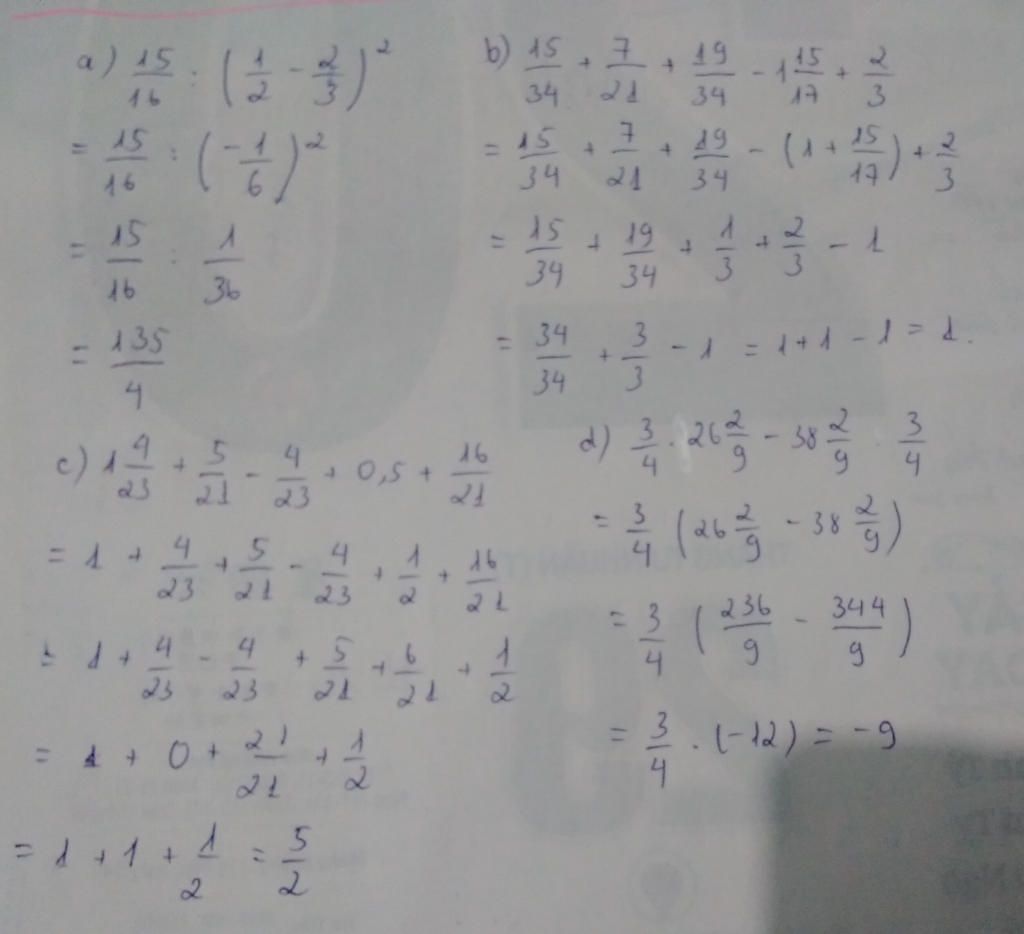 a) 15/16 : (1/2 - 2/3)²
= 15/16 : (-1/6)²
= 15/16 : 1/36
= 135/4
b) 15/34 + 7/21 + 19/34 - 1 15/17 + 2/3
= 15/34 + 7/21 + 19/34 - (1 + 15/17) + 2/3
= 15/34 + 19/34 + 1/3 + 2/3 - 1
= 34/34 + 3/3 - 1 = 1+1 - 1 = 1.
c) 1 4/23 + 5/21 - 4/23 + 0,5 + 16/21
= 1 + 4/23 + 5/21 - 4/23 + 1/2 + 16/21
= 1 + 4/23 - 4/23 + 5/21 + 6/21 + 1/2
= 1 + 0 + 21/21 + 1/2
= 1 + 1 + 1/2 = 5/2
d) 3/4 . 26 2/9 - 38 2/9 . 3/4
= 3/4 (26 2/9 - 38 2/9)
= 3/4 (236/9 - 344/9)
= 3/4 . (-12) = -9